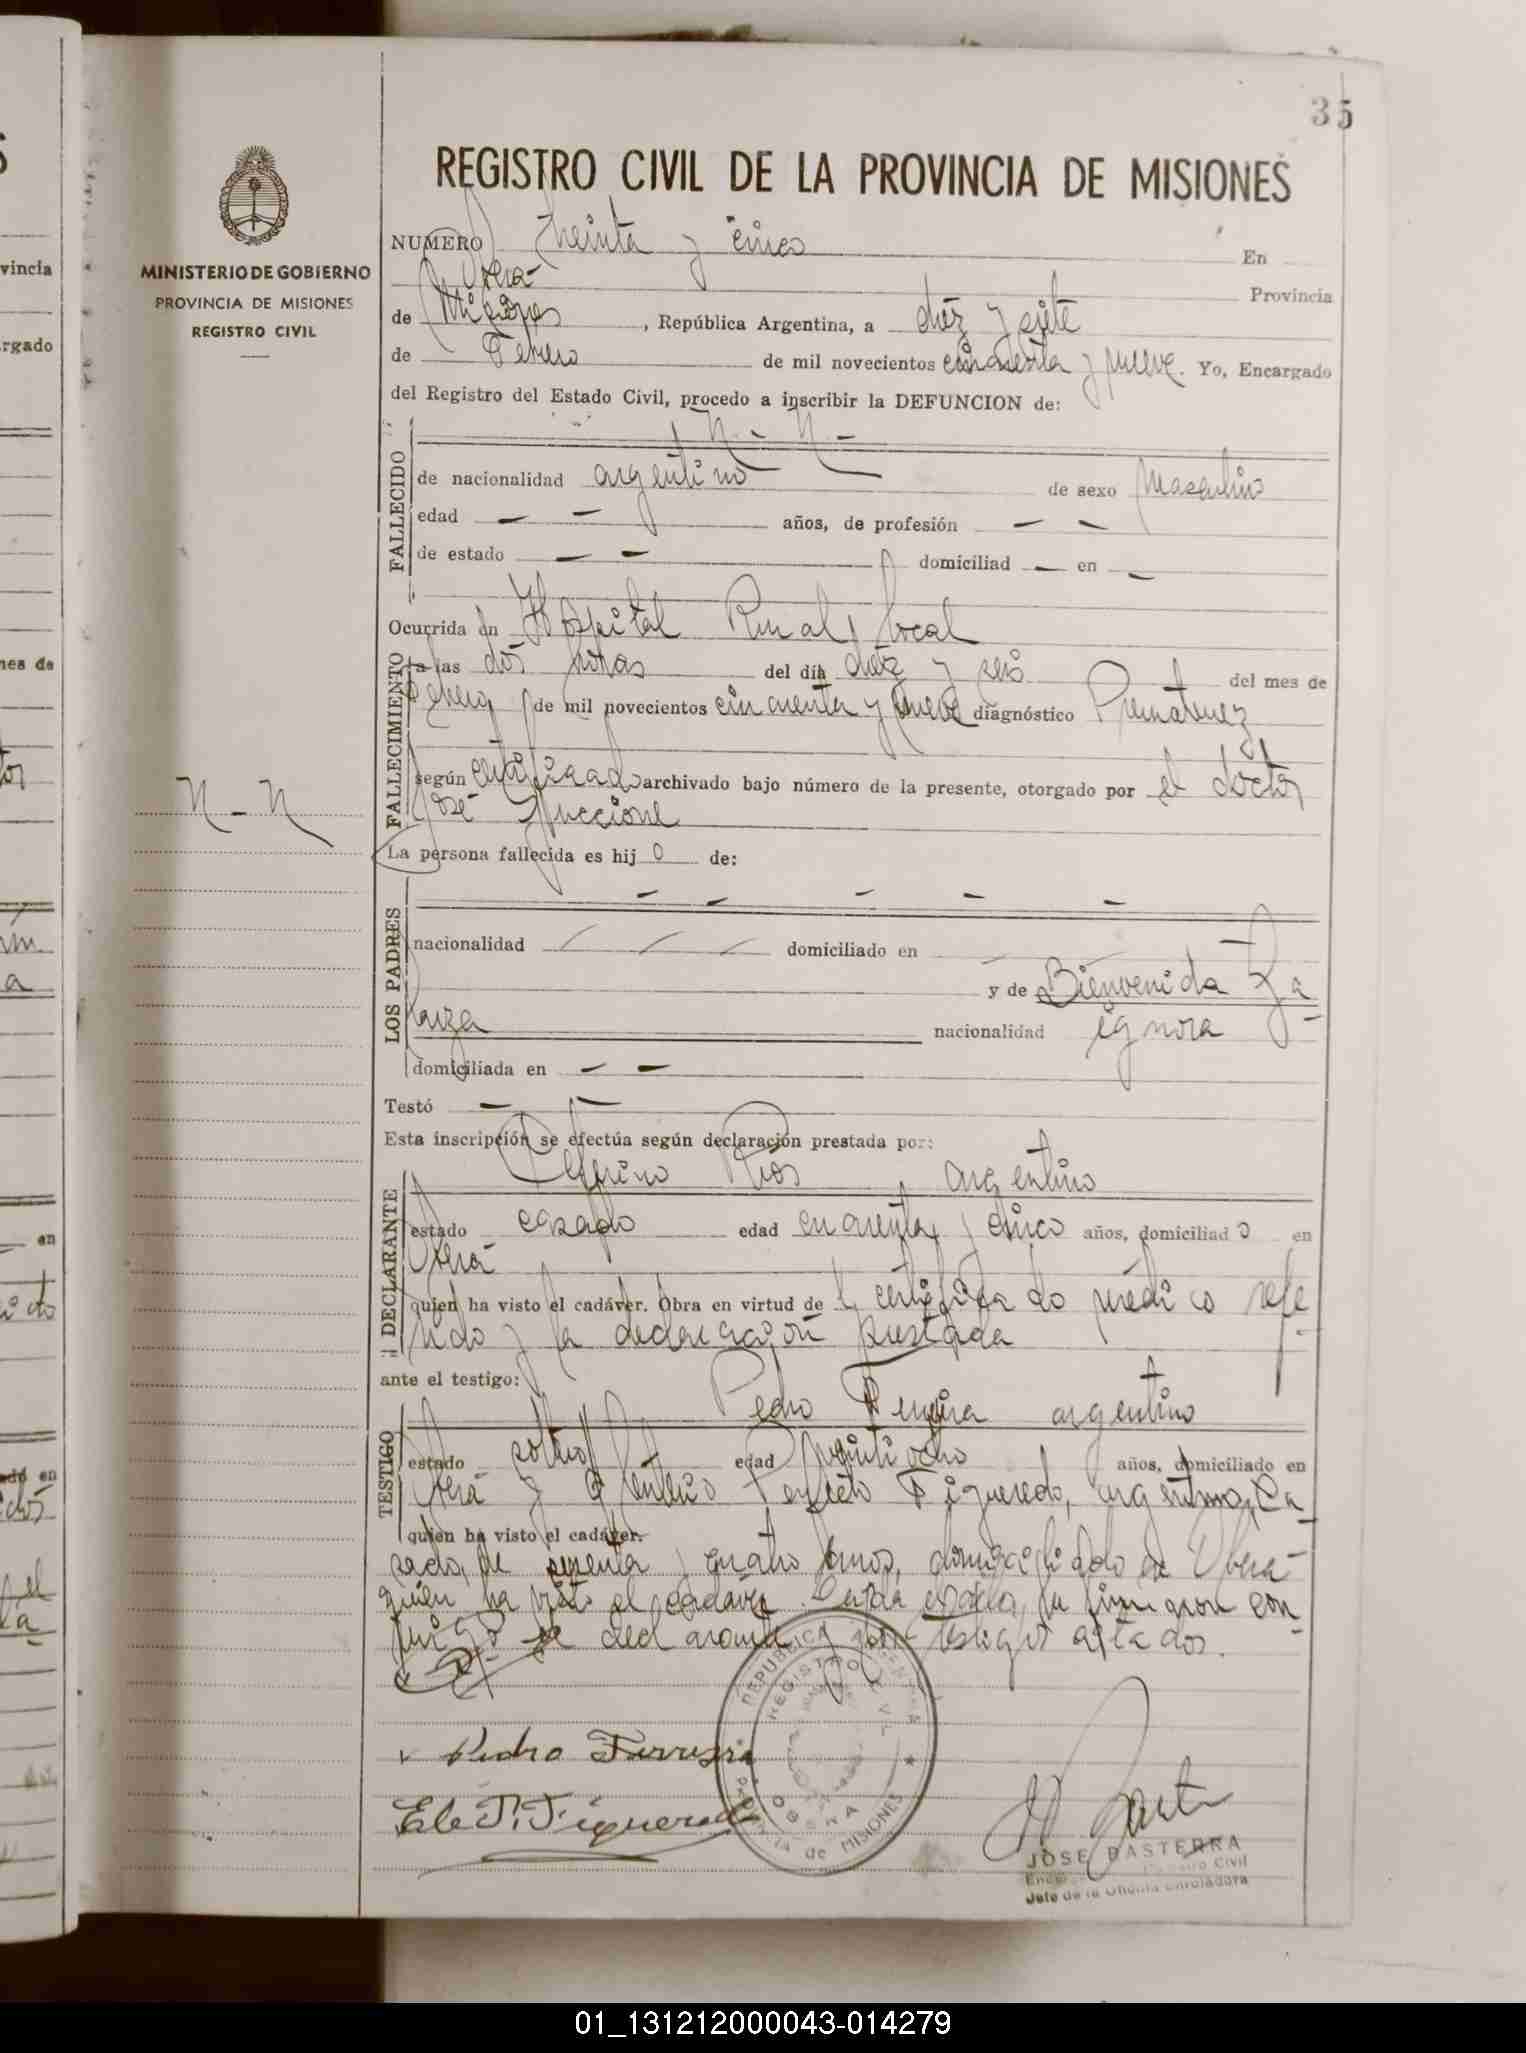 35
REGISTRO CIVIL DE LA PROVINCIA DE MISIONES
MINISTERIO DE GOBIERNO
PROVINCIA DE MISIONES
REGISTRO CIVIL
NUMERO Treinta y cinco En
Oberá Provincia
de Misiones, República Argentina, a diez y siete
de Febrero de mil novecientos cincuenta y nueve. Yo, Encargado
del Registro del Estado Civil, procedo a inscribir la DEFUNCION de:
N. - N. -
FALLECIDO
de nacionalidad argentino de sexo masculino
edad — — años, de profesión — —
de estado — — domiciliad — en —
FALLECIMIENTO
Ocurrida en Hospital Rural, local
a las dos horas del día diez y seis del mes de
Febrero de mil novecientos cincuenta y nueve diagnóstico Prematurez
según certificado archivado bajo número de la presente, otorgado por el doctor
José
N - N
La persona fallecida es hijo de:
— — — — —
LOS PADRES
nacionalidad / / / domiciliado en —
y de Bienvenida
nacionalidad ignora -
domiciliada en — —
Testó — —
Esta inscripción se efectúa según declaración prestada por:
Ceferino Rios argentino
DECLARANTE
estado casado edad cuarenta y cinco años, domiciliado en
Oberá
quien ha visto el cadáver. Obra en virtud de l certificado médico refe-
rido y la declaración prestada
ante el testigo:
Pedro Ferreira argentino
TESTIGO
estado soltero edad veintiocho años, domiciliado en
Oberá y Eleuterio Perfecto Figueredo, argentino, ca
quien ha visto el cadáver.
sado, de sesenta y cuatro años, domiciliado en Oberá
quien ha visto el cadáver. Leida el acta, la firmaron con-
migo el declarante y los testigos citados.
REPUBLICA ARGENTINA
REGISTRO CIVIL
OBERA
PROVINCIA de MISIONES
Pedro Ferreira
Ele P. Figueredo
JOSE BASTERRA
Registro Civil
Jefe de la Oficina Enroladora
01_131212000043-014279